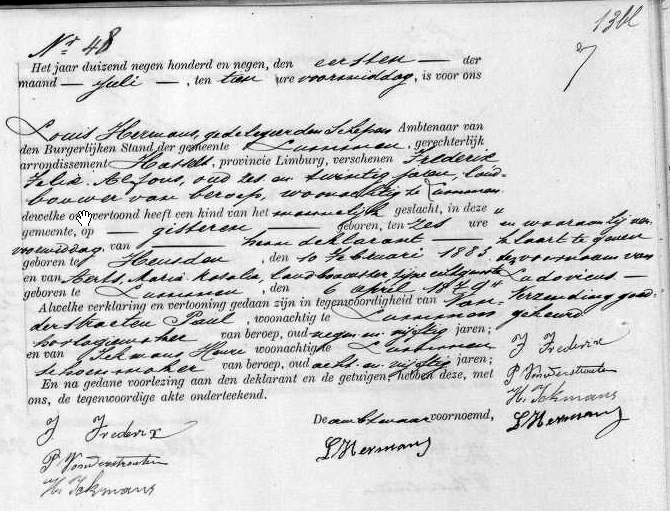 13
Nr 48
Het jaar duizend negen honderd en negen, den eersten der
maand juli, ten tien ure voormiddag, is voor ons
Louis Hermans, gedelegueerden Schepen Ambtenaar van
den Burgerlijken Stand der gemeente Lummen, gerechterlijk
arrondissement Hasselt, provincie Limburg, verschenen Frederix
Felix Alfons, oud zes en twintig jaren, land-
bouwer van beroep, woonachtig te Lummen
dewelke ons vertoond heeft een kind van het mannelijk geslacht, in deze
gemeente, op gisteren geboren, ten zes ure
voormiddag, van hem deklarant
geboren te Heusden, den 10 Februari 1883
en van Aerts, Maria, landbouwster zijne echtgenote
geboren te Lummen, den 6 april 1879
en waaraan hij ver-
klaart te geven
de voornaam van
Ludovicus
Verzending goed-
gekeurd
Alwelke verklaring en vertooning gedaan zijn in tegenwoordigheid van Van-
derstraeten Paul, woonachtig te Lummen
horlogiemaker van beroep, oud negen en vijftig jaren;
en van Ickmans Henri woonachtig te Lummen
schoenmaker van beroep, oud acht en vijftig jaren;
En na gedane voorlezing aan den deklarant en de getuigen, hebben deze, met
ons, de tegenwoordige akte onderteekend.
J Frederix
P Vanderstraeten
H. Ickmans
L Hermans
De ambtenaar voornoemd,
L Hermans
J Frederix
P Vanderstraeten
H. Ickmans